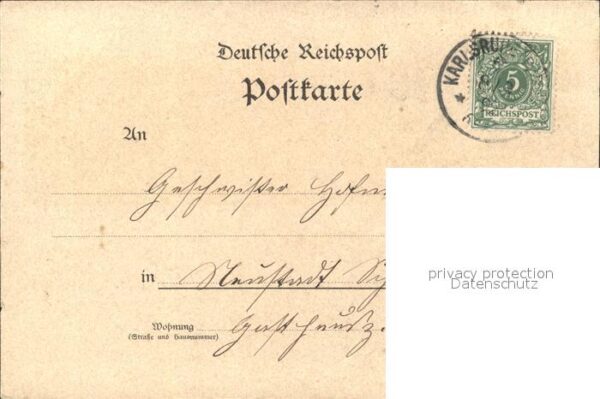 Deutsche Reichspost
Postkarte
KARLSRUHE
5
REICHSPOST
An
Geschwister Hof
in Neustadt
Wohnung
(Straße und Hausnummer)
privacy protection
Datenschutz